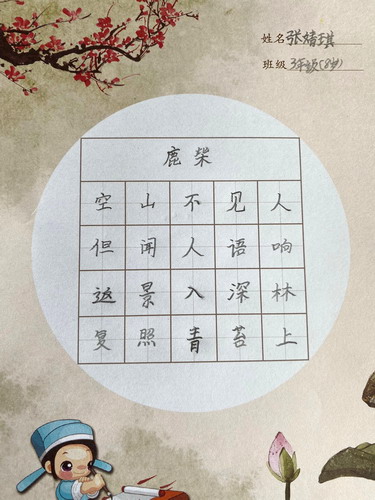 姓名张婧琪
班级3年级(8岁)
鹿柴
空山不见人
但闻人语响
返景入深林
复照青苔上